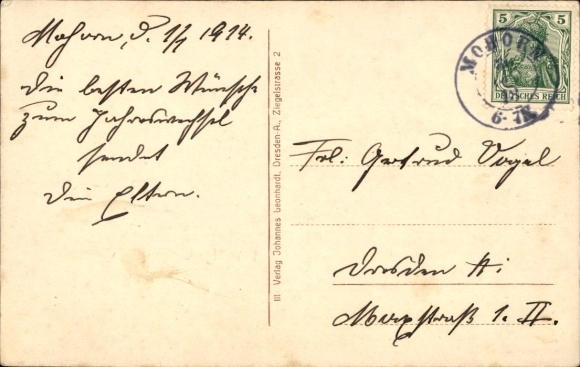 Mohorn, d. 1/1 1914.
Die besten Wünsche
zum Jahreswechsel
sendet
Die Eltern.
III Verlag Johannes Leonhardt, Dresden-A., Ziegelstrasse 2
5 5
DEUTSCHES REICH
MOHORN
6-7N
Frl. Gertrud Vogel
Dresden A:
Marxstraß 1. II.